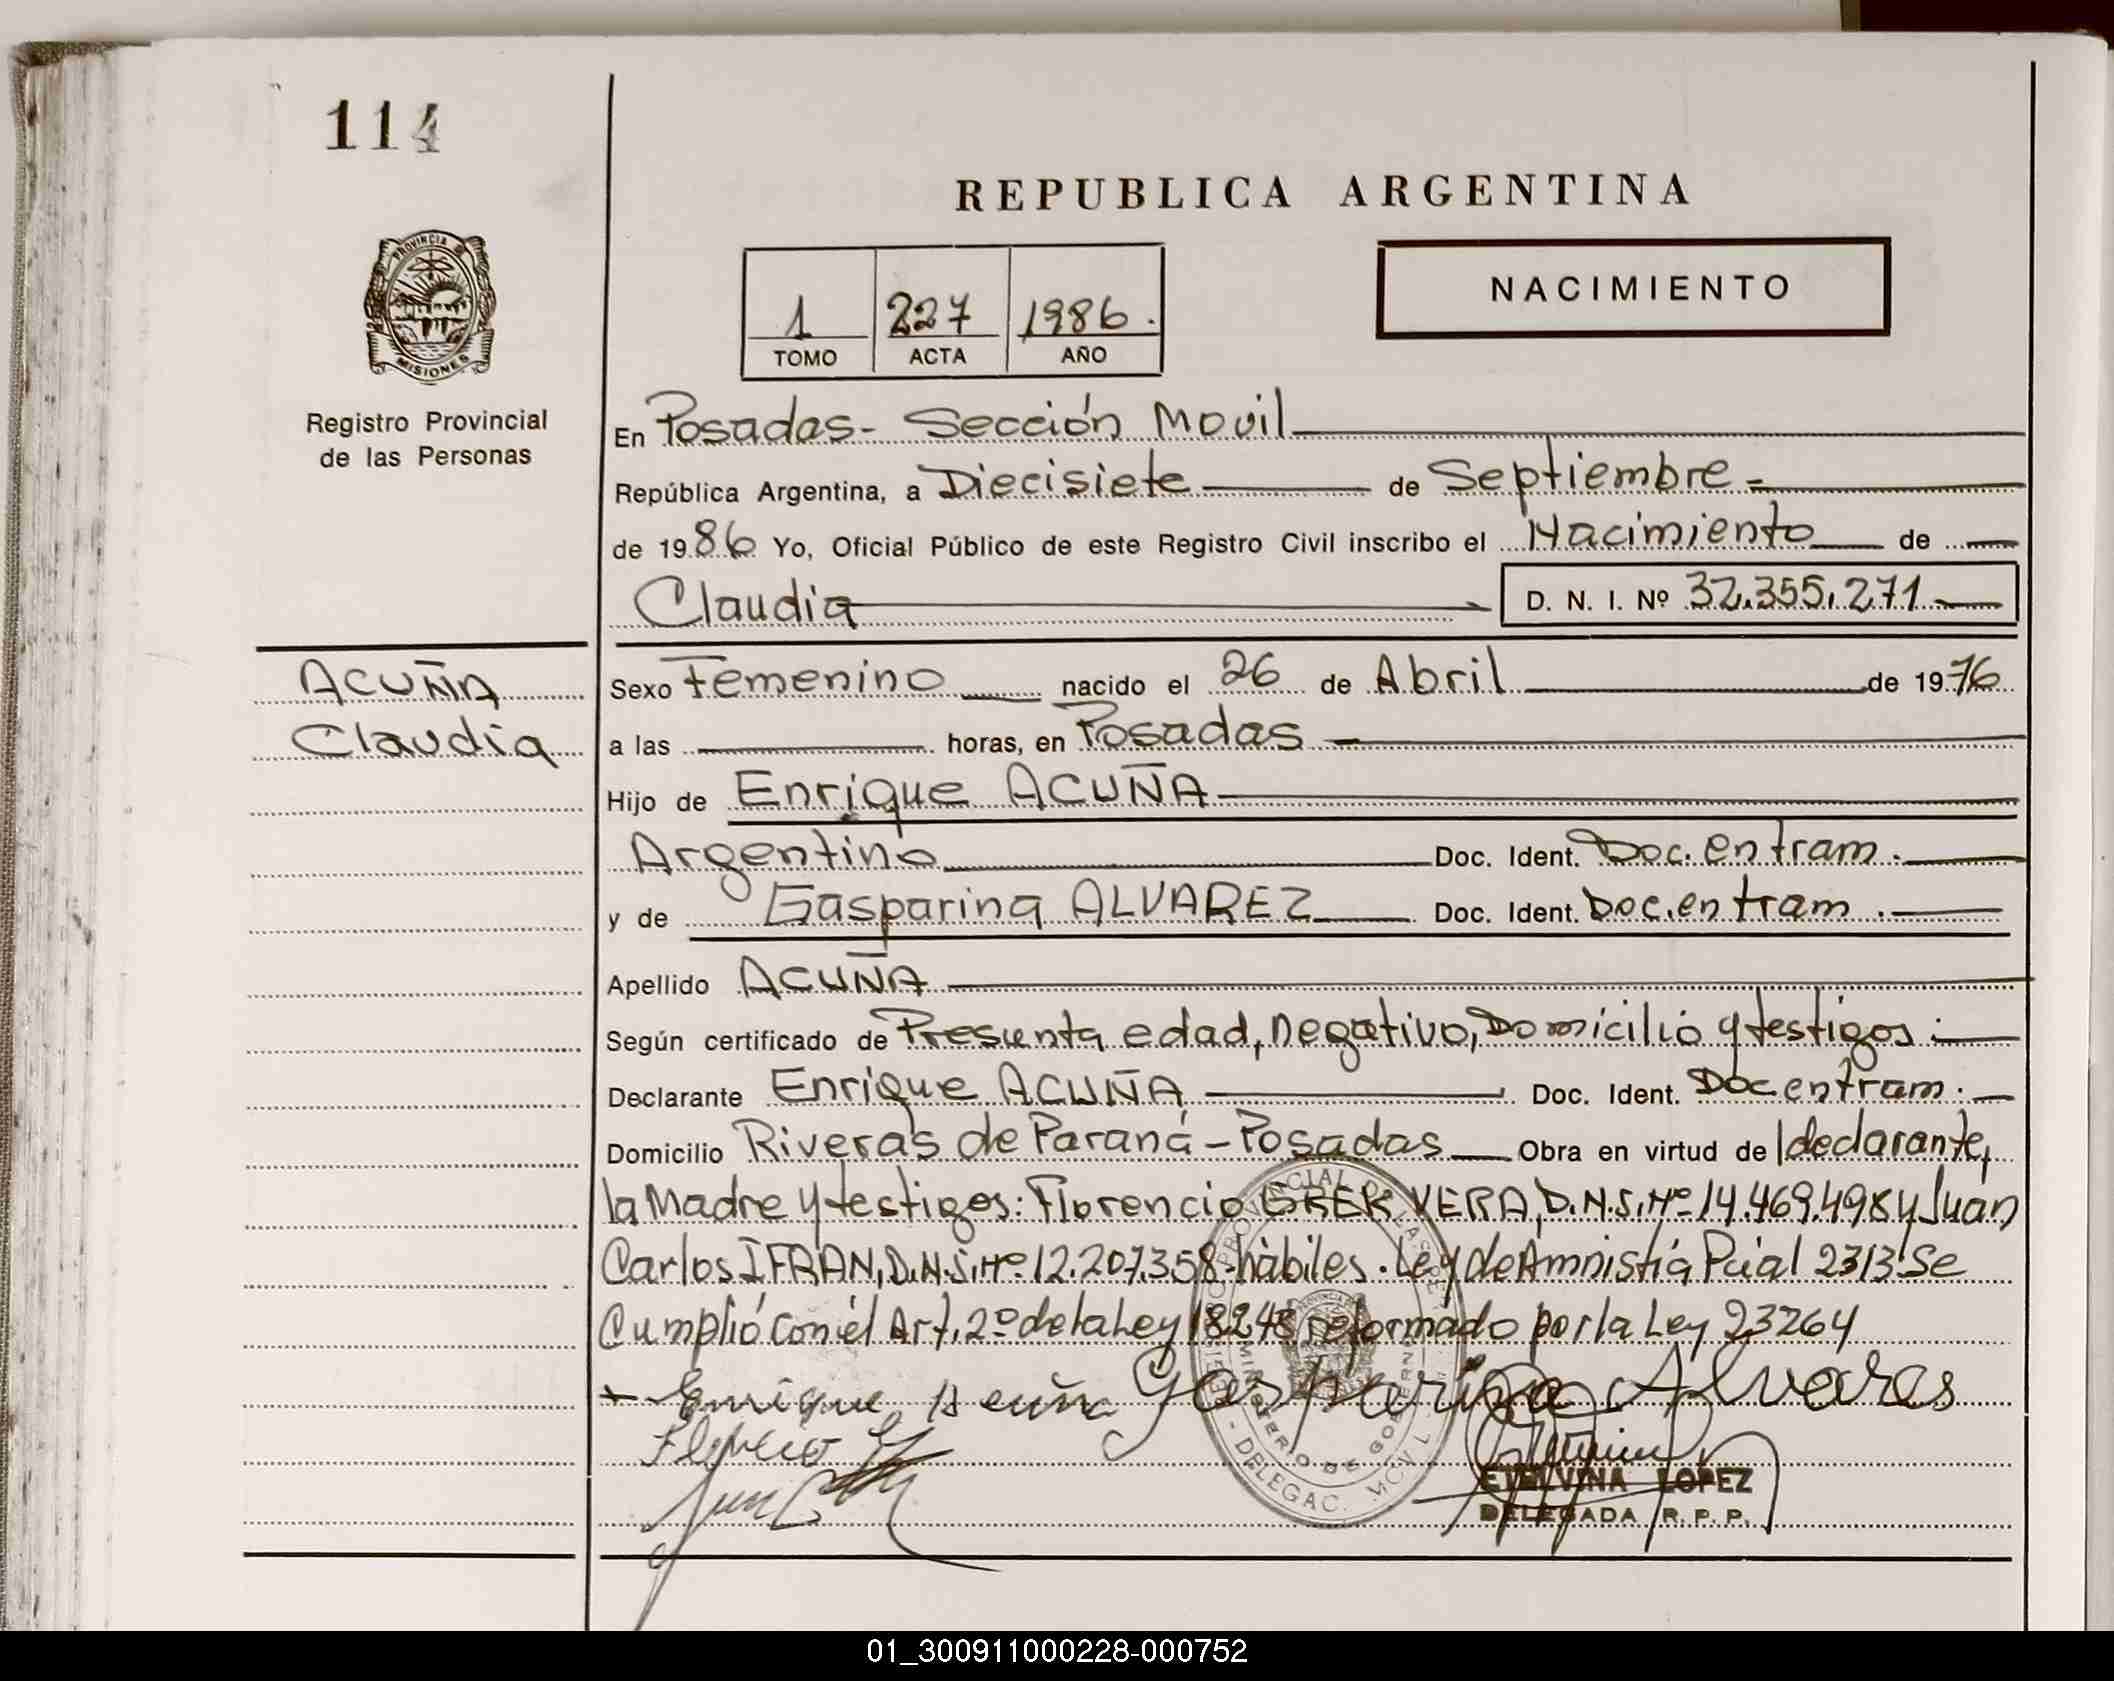 114
REPUBLICA ARGENTINA
NACIMIENTO
1 227 1986.
TOMO ACTA AÑO
PROVINCIA DE
MISIONES
Registro Provincial
de las Personas
En Posadas - Sección Movil
República Argentina, a Diecisiete de Septiembre -
de 1986 Yo, Oficial Público de este Registro Civil inscribo el Nacimiento de
Claudia D. N. I. Nº 32.355.271
ACUÑA
Claudia
Sexo Femenino nacido el 26 de Abril de 1976
a las horas, en Posadas
Hijo de Enrique ACUÑA
Argentino Doc. Ident. Doc. en tram.
y de Gasparina ALVAREZ Doc. Ident. Doc. en tram.
Apellido ACUÑA
Según certificado de Presunta edad, negativo, Domicilio y testigos:
Declarante Enrique ACUÑA Doc. Ident. Doc en tram.
Domicilio Riveras de Paraná - Posadas Obra en virtud de declarante,
la Madre y testigos: Florencio VERA, D.N.I. Nº 14.469.498 y Juan
Carlos IFRAN, D.N.I. Nº 12.207.358 - hábiles. Ley de Amnistía Pcial 2313 Se
Cumplió con el Art. 2º de la Ley 18248 reformado por la Ley 23264
Enrique Acuña Gasparina Alvares
ETELVINA LOPEZ
DELEGADA R. P. P.
MINISTERIO DE GOBIERNO
- DELEGAC. MOVIL -
01_300911000228-000752